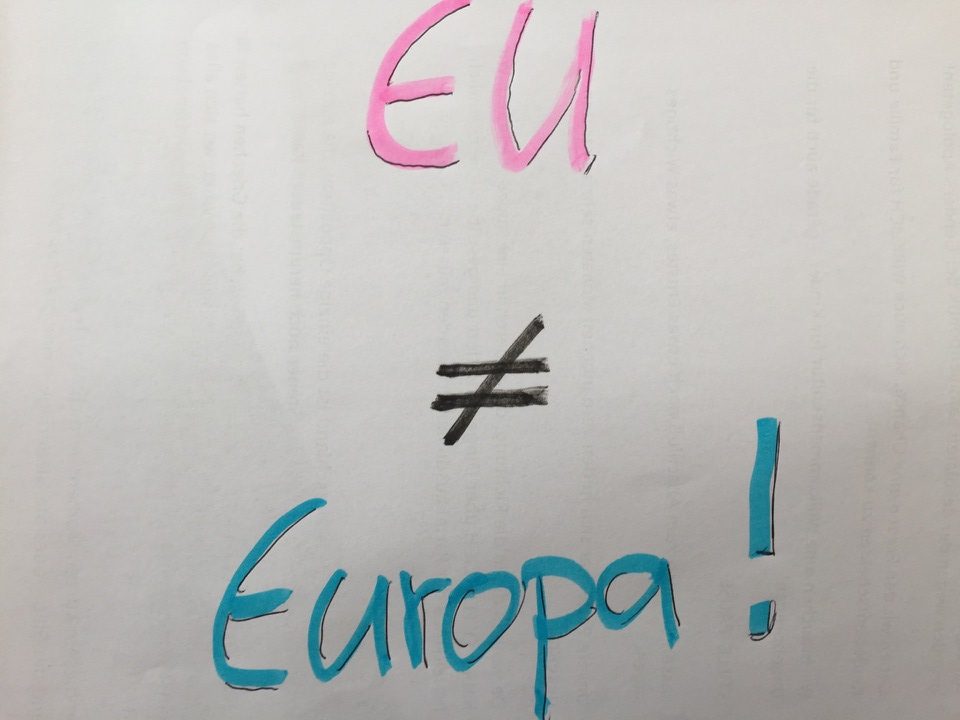 EU
≠
Europa!